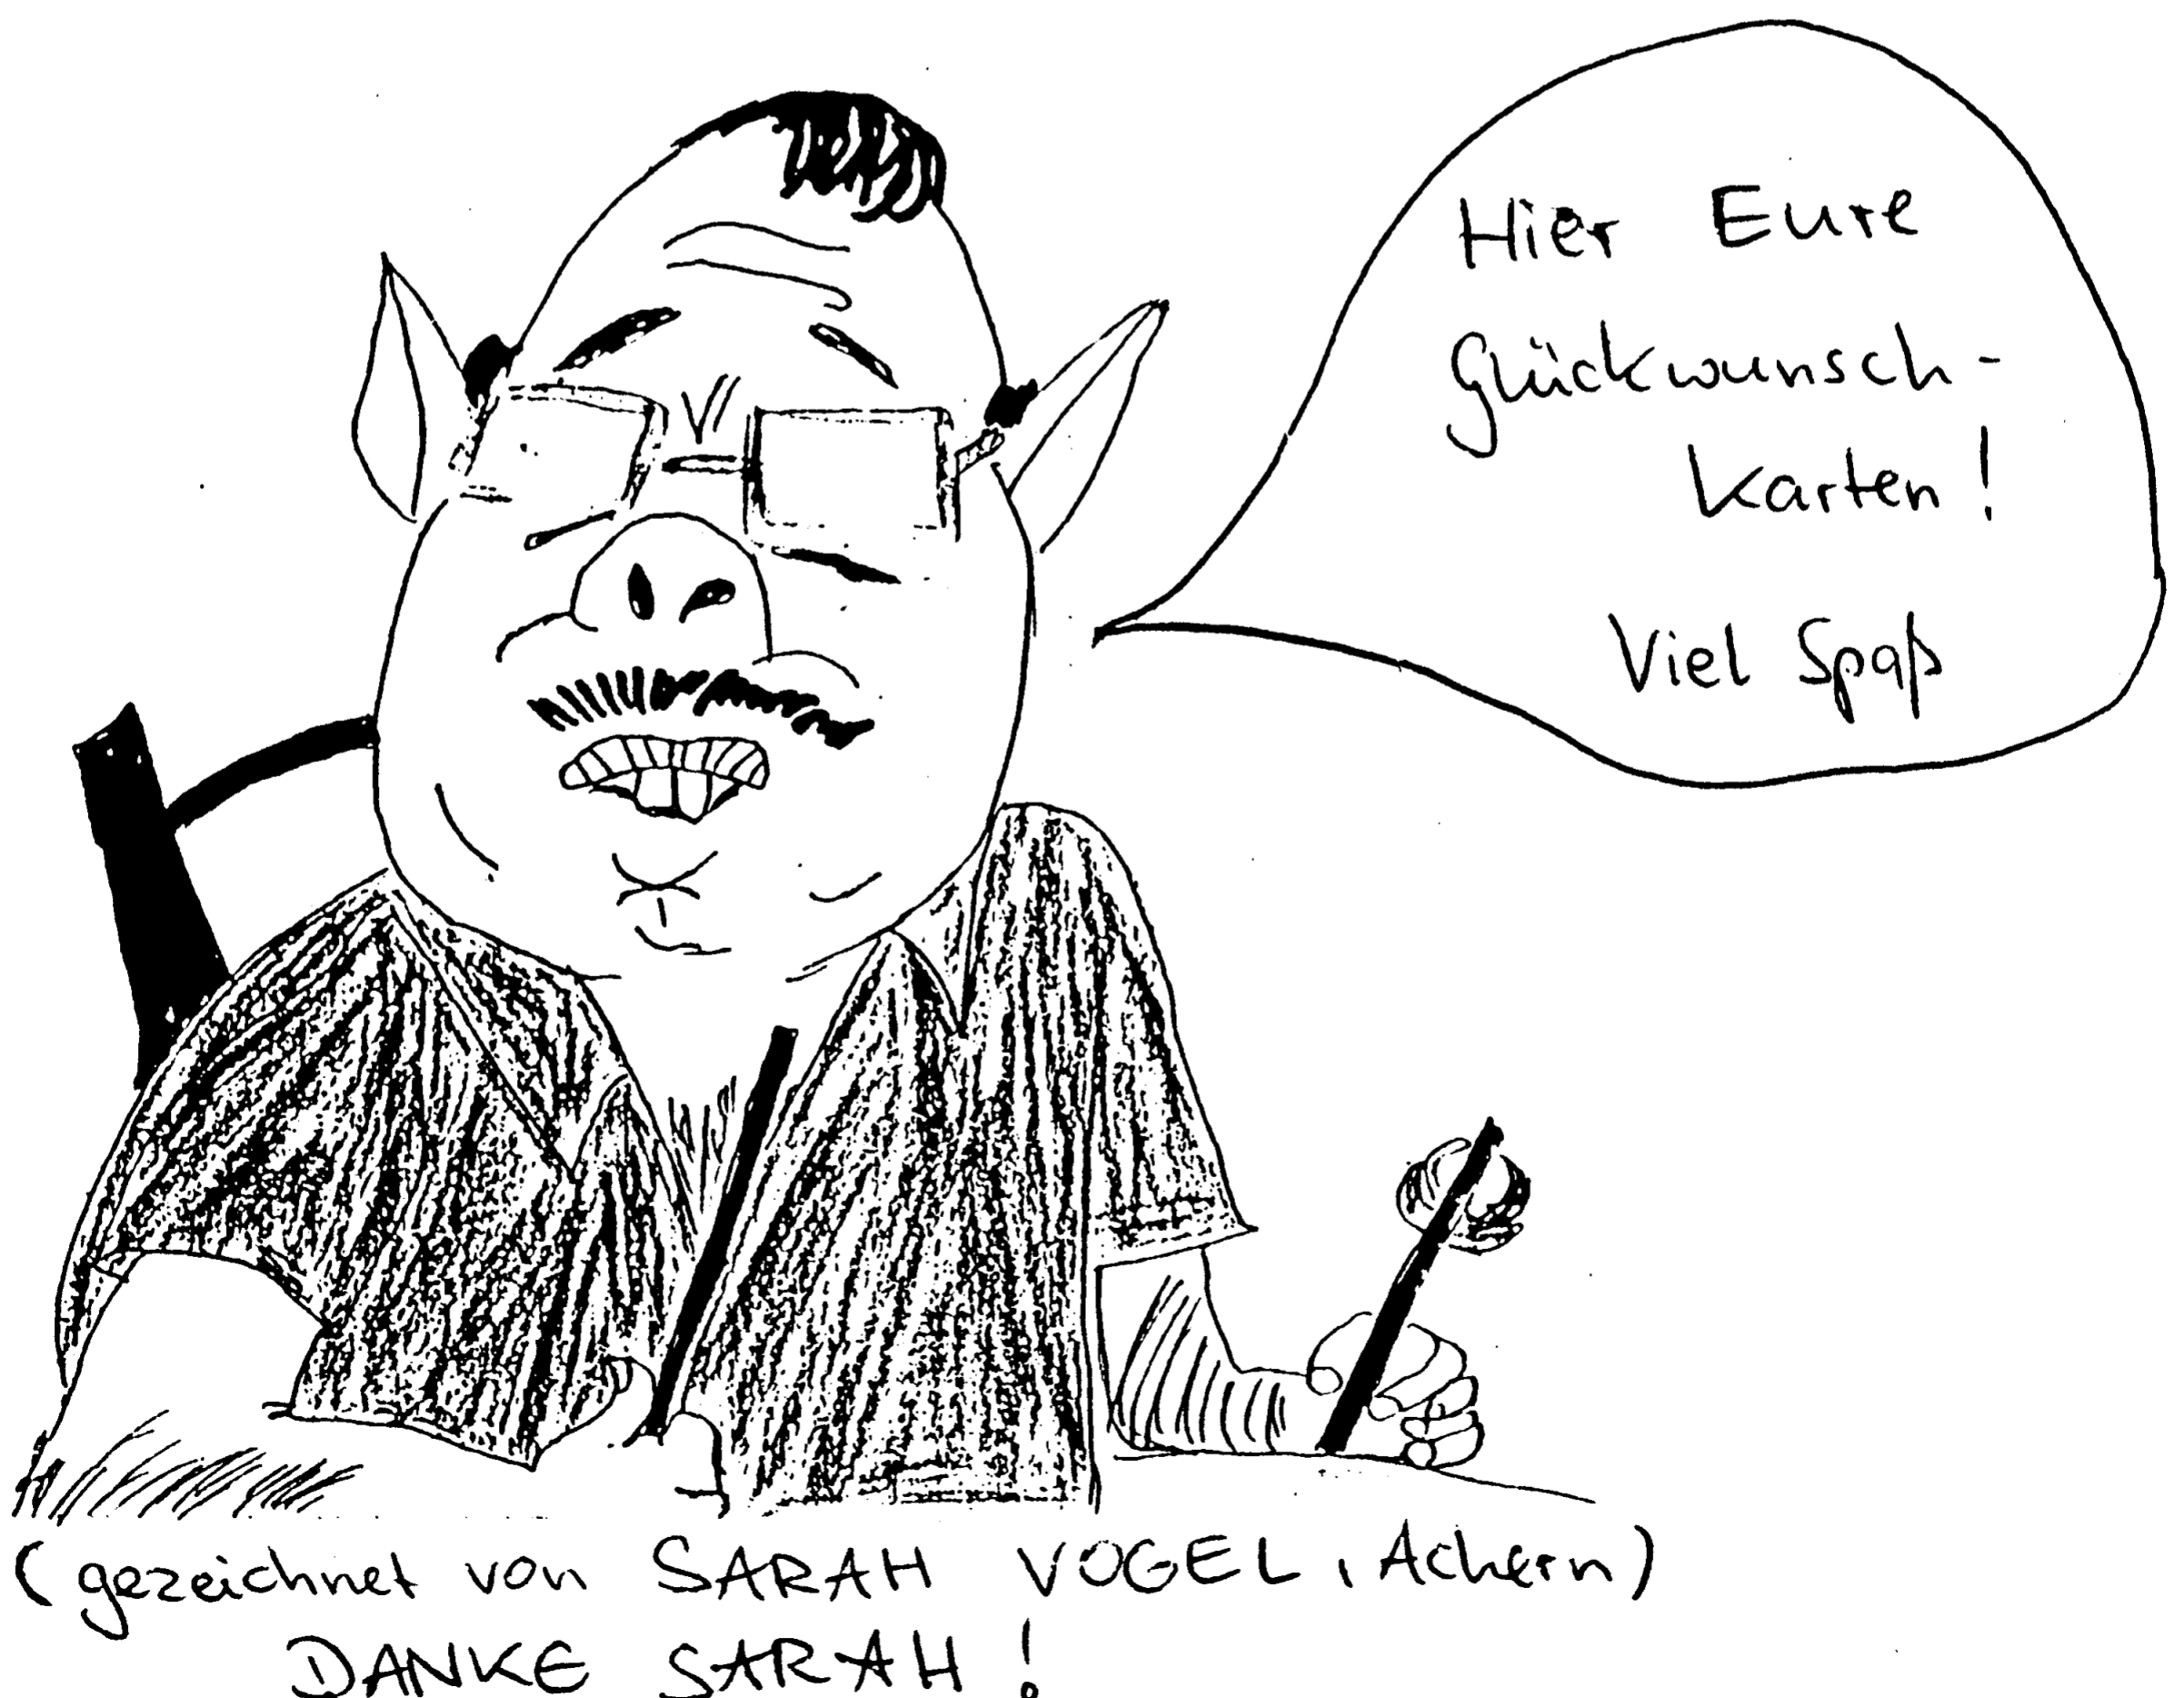 Hier Eure
Glückwunsch-
karten!
Viel Spaß
(gezeichnet von SARAH VOGEL, Achern)
DANKE SARAH!